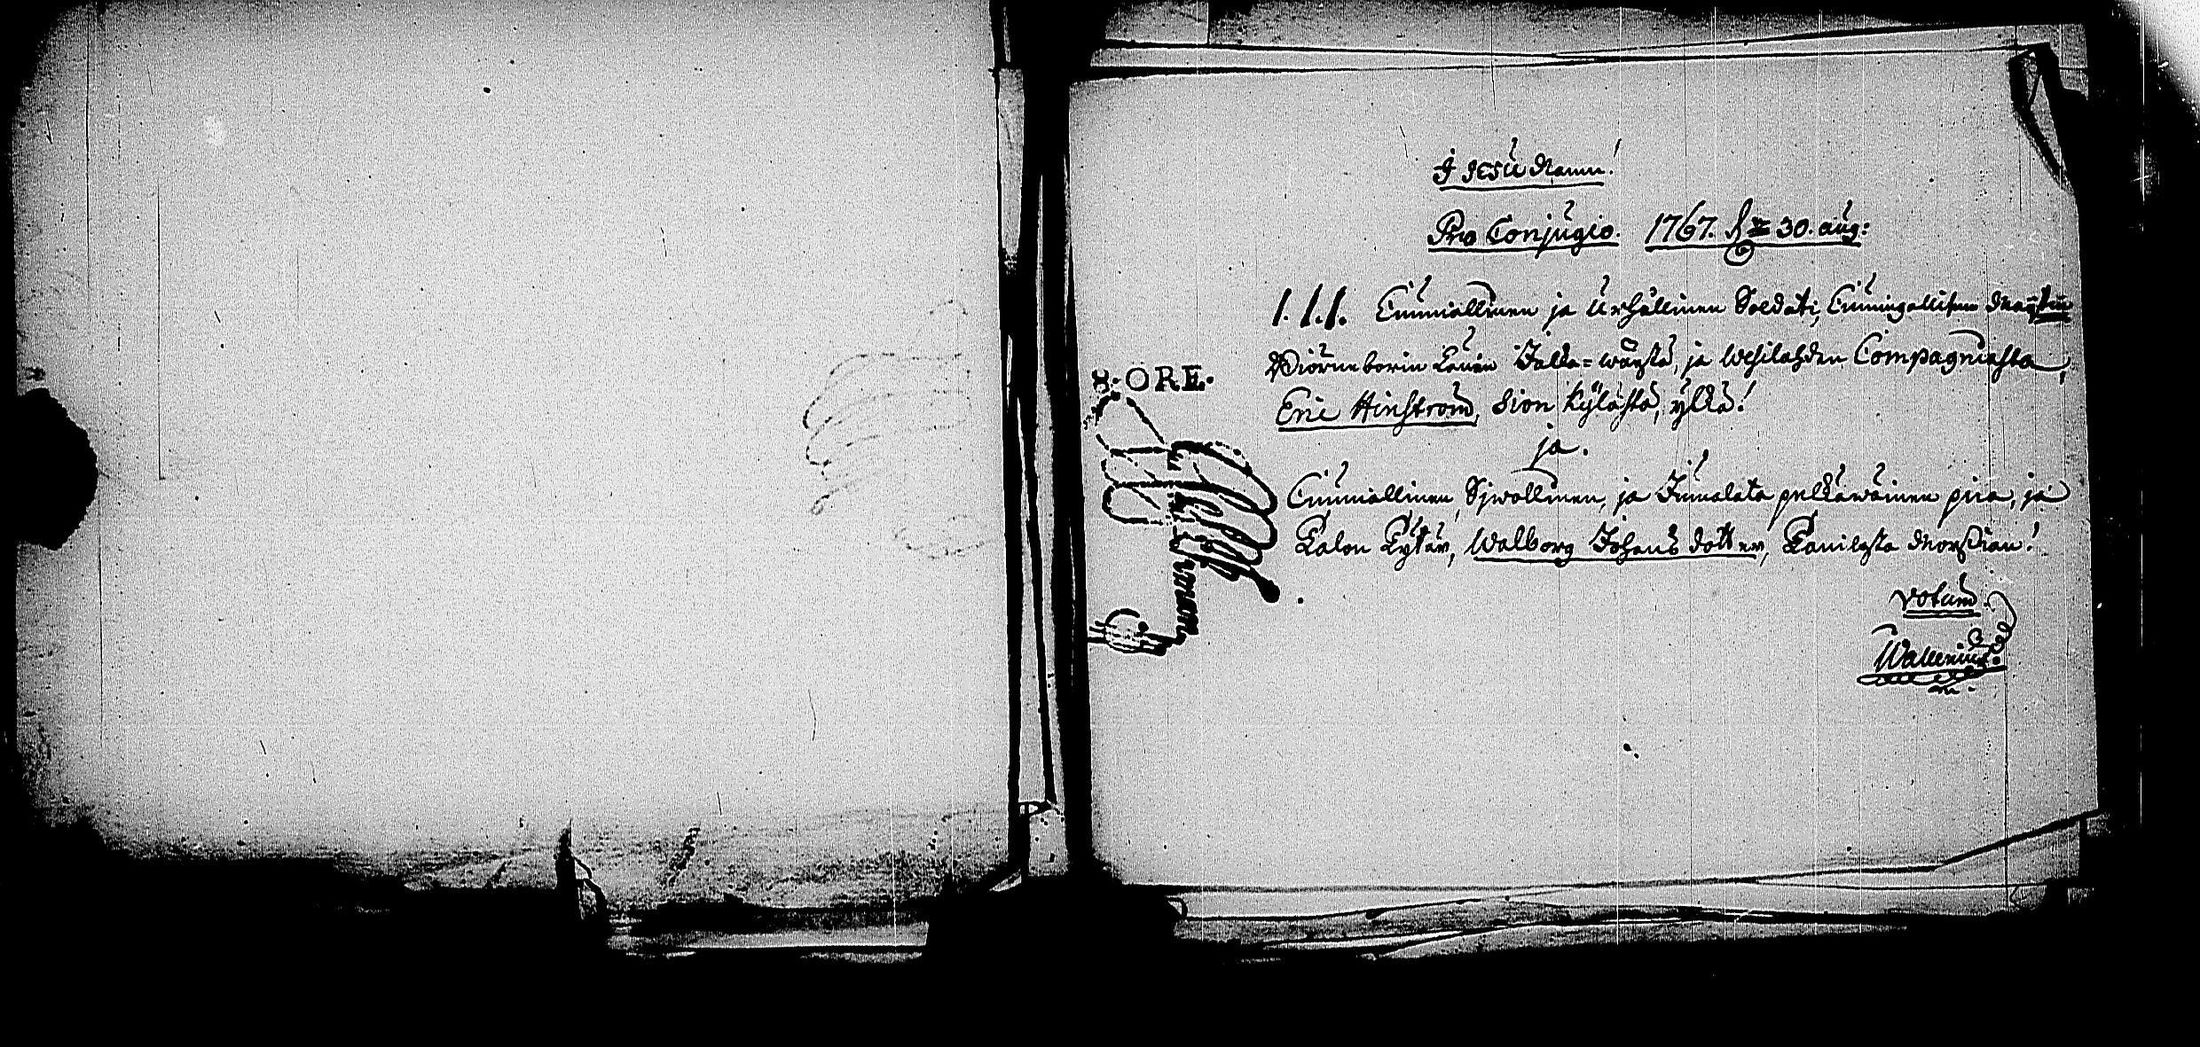 I JESU Namn!
Pro Conjugio. 1767. d. 30. aug:
1. 1. 1. Cunniallinen ja Urhollinen Soldati, Cuningallisen
Biörneborin Länin Jalka=wäestä, ja Wesilahden Compagniasta,
8. ÖRE.
Eric Hinström, Sion kylästä, ylkä!
ja.
Cunniallinen, Sjwollinen, ja Jumalata pelkäwäinen pica, ja
Talon Tytär, Walborg Johans dotter, morsian!
Votum.
Wallenius.